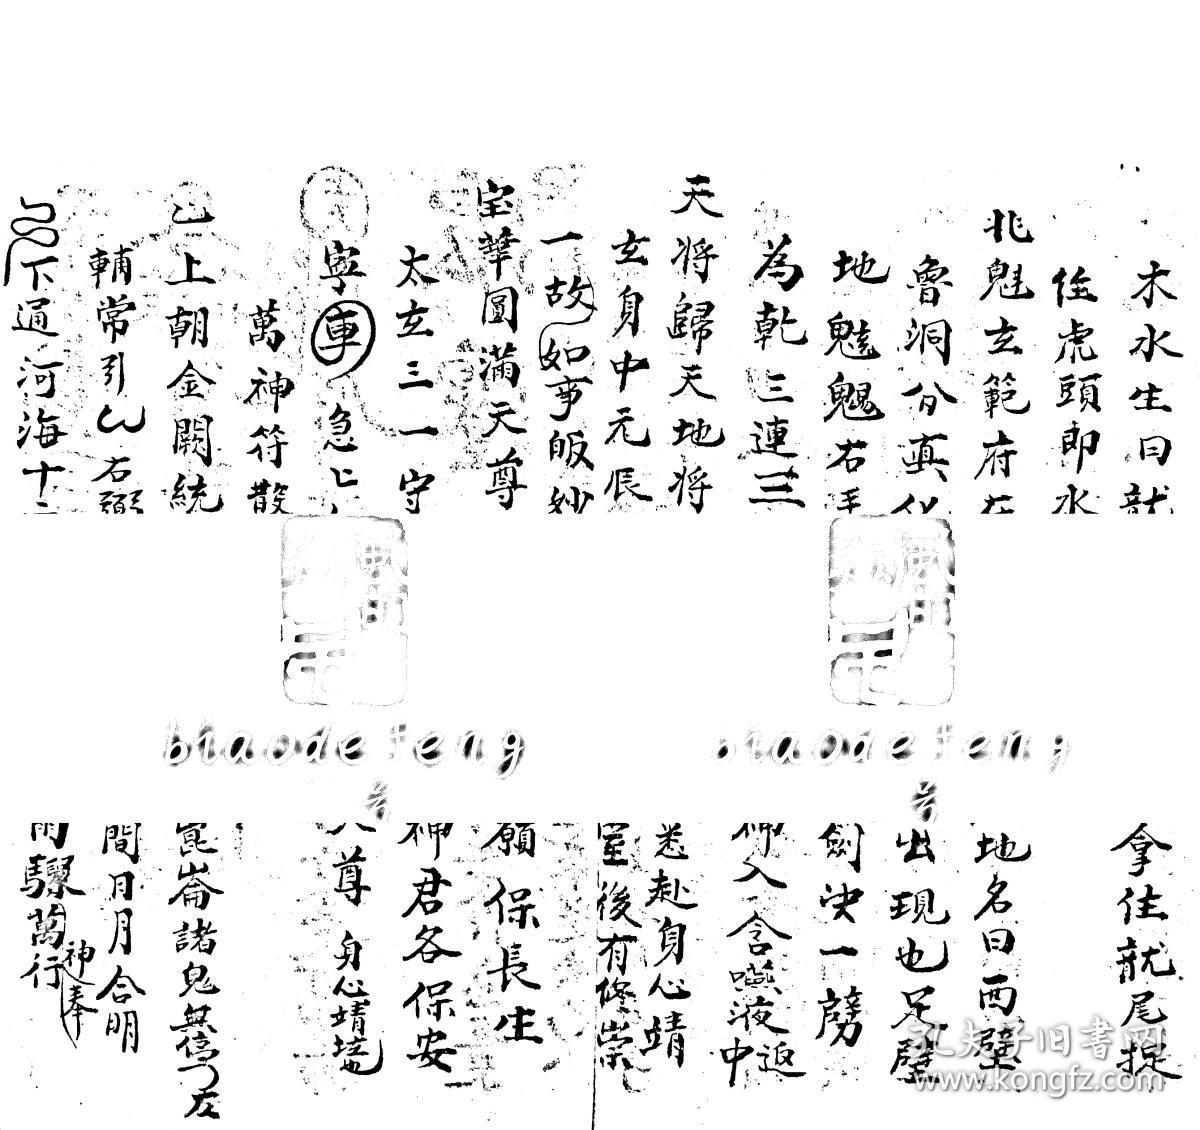 木水生曰就
住虎頭即水
兆魁玄範府左
魯洞分真化
地魁魁右手
為乾三連三
天将歸天地将
玄身中元辰
一故如事皈妙
宝華圓滿天尊
太玄三一守
寧車急
萬神符散
上朝金闕統
輔常引 右弼
下通河海十二
biaodefeng
biaodefeng
拿住就尾捉
地名曰西壁
出現也足壁
劍决一劈
神入含嚥液返中
悉赴身心靖
室後有修崇
願保長生
神君各保安
天尊身心靖
崑崙諸鬼無停左
間日月合明
雨驟萬神奉行
孔夫子旧書网
www.kongfz.com